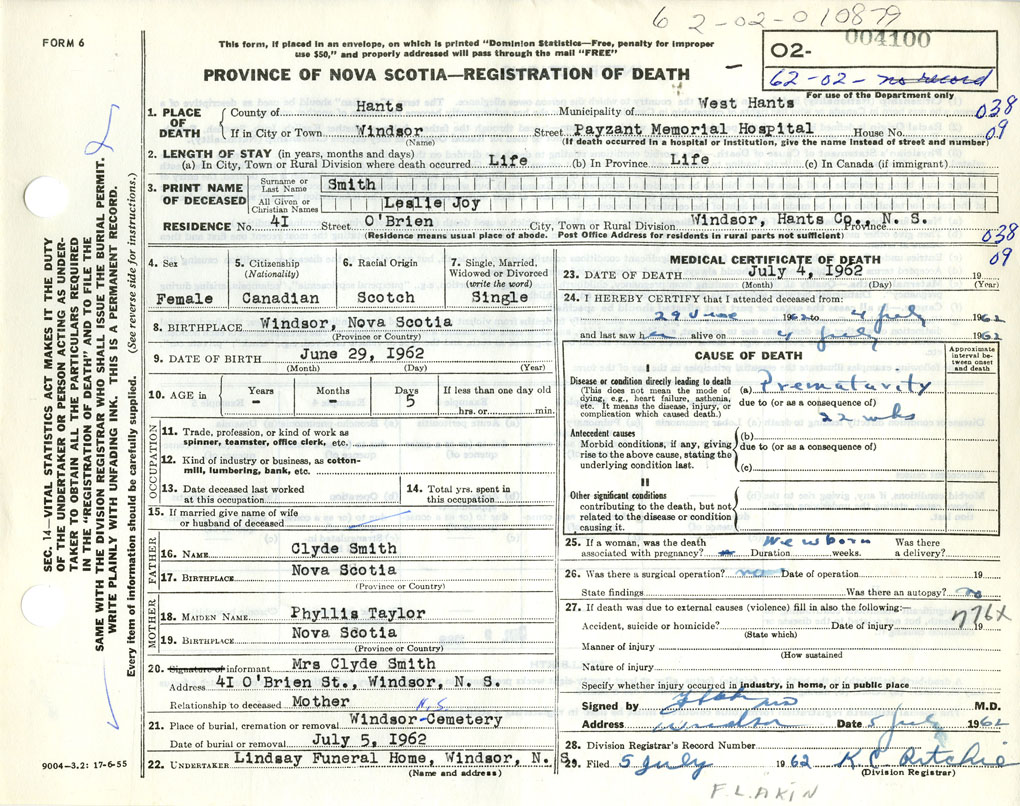 62-02-010879
FORM 6
This form, if placed in an envelope, on which is printed "Dominion Statistics—Free, penalty for improper
use $50," and properly addressed will pass through the mail "FREE"
PROVINCE OF NOVA SCOTIA—REGISTRATION OF DEATH
02- 004100
62-02- no record
For use of the Department only
1. PLACE OF DEATH
County of Hants Municipality of West Hants 038
If in City or Town Windsor Street Payzant Memorial Hospital House No. 09
(Name) (If death occurred in a hospital or institution, give the name instead of street and number)
2. LENGTH OF STAY (in years, months and days)
(a) In City, Town or Rural Division where death occurred Life (b) In Province Life (c) In Canada (if immigrant)
3. PRINT NAME OF DECEASED
Surname or Last Name Smith
All Given or Christian Names Leslie Joy
RESIDENCE No. 41 Street O'Brien City, Town or Rural Division Windsor, Hants Co., N. S. Province
(Residence means usual place of abode. Post Office Address for residents in rural parts not sufficient)
038
09
SEC. 14—VITAL STATISTICS ACT MAKES IT THE DUTY
OF THE UNDERTAKER OR PERSON ACTING AS UNDER-
TAKER TO OBTAIN ALL THE PARTICULARS REQUIRED
IN THE "REGISTRATION OF DEATH" AND TO FILE THE
SAME WITH THE DIVISION REGISTRAR WHO SHALL ISSUE THE BURIAL PERMIT.
WRITE PLAINLY WITH UNFADING INK. THIS IS A PERMANENT RECORD.
Every item of information should be carefully supplied. (See reverse side for instructions.)
4. Sex
Female
5. Citizenship
(Nationality)
Canadian
6. Racial Origin
Scotch
7. Single, Married,
Widowed or Divorced
(write the word)
Single
8. BIRTHPLACE Windsor, Nova Scotia
(Province or Country)
9. DATE OF BIRTH June 29, 1962
(Month) (Day) (Year)
10. AGE in
Years -
Months -
Days 5
If less than one day old
hrs. or min.
OCCUPATION
11. Trade, profession, or kind of work as
spinner, teamster, office clerk, etc.
12. Kind of industry or business, as cotton-
mill, lumbering, bank, etc.
13. Date deceased last worked
at this occupation
14. Total yrs. spent in
this occupation
15. If married give name of wife
or husband of deceased
FATHER
16. NAME Clyde Smith
17. BIRTHPLACE Nova Scotia
(Province or Country)
MOTHER
18. MAIDEN NAME Phyllis Taylor
19. BIRTHPLACE Nova Scotia
(Province or Country)
20. Signature of informant Mrs Clyde Smith
Address 41 O'Brien St., Windsor, N. S.
Relationship to deceased Mother
N.S.
21. Place of burial, cremation or removal Windsor-Cemetery
Date of burial or removal July 5, 1962
22. UNDERTAKER Lindsay Funeral Home, Windsor, N. S.
(Name and address)
9004—3.2: 17-6-55
MEDICAL CERTIFICATE OF DEATH
23. DATE OF DEATH July 4, 1962 19
(Month) (Day) (Year)
24. I HEREBY CERTIFY that I attended deceased from:
29 June 1962 to 4 July 1962
and last saw her alive on 4 July 1962
CAUSE OF DEATH
Approximate interval between onset and death
I
Disease or condition directly leading to death
(This does not mean the mode of
dying, e.g., heart failure, asthenia,
etc. It means the disease, injury, or
complication which caused death.)
(a) Prematurity
due to (or as a consequence of)
22 wks
Antecedent causes
Morbid conditions, if any, giving
rise to the above cause, stating the
underlying condition last.
(b)
due to (or as a consequence of)
(c)
II
Other significant conditions
contributing to the death, but not
related to the disease or condition
causing it.
25. If a woman, was the death Newborn Was there
associated with pregnancy? Duration weeks. a delivery?
26. Was there a surgical operation? no Date of operation 19
State findings Was there an autopsy? no
27. If death was due to external causes (violence) fill in also the following:—
776X
Accident, suicide or homicide? Date of injury 19
(State which)
Manner of injury
(How sustained
Nature of injury
Specify whether injury occurred in industry, in home, or in public place
Signed by M.D.
Address Windsor Date 5 July 1962
28. Division Registrar's Record Number
29. Filed 5 July 1962 K. E. Ritchie
(Division Registrar)
F. L. AKIN